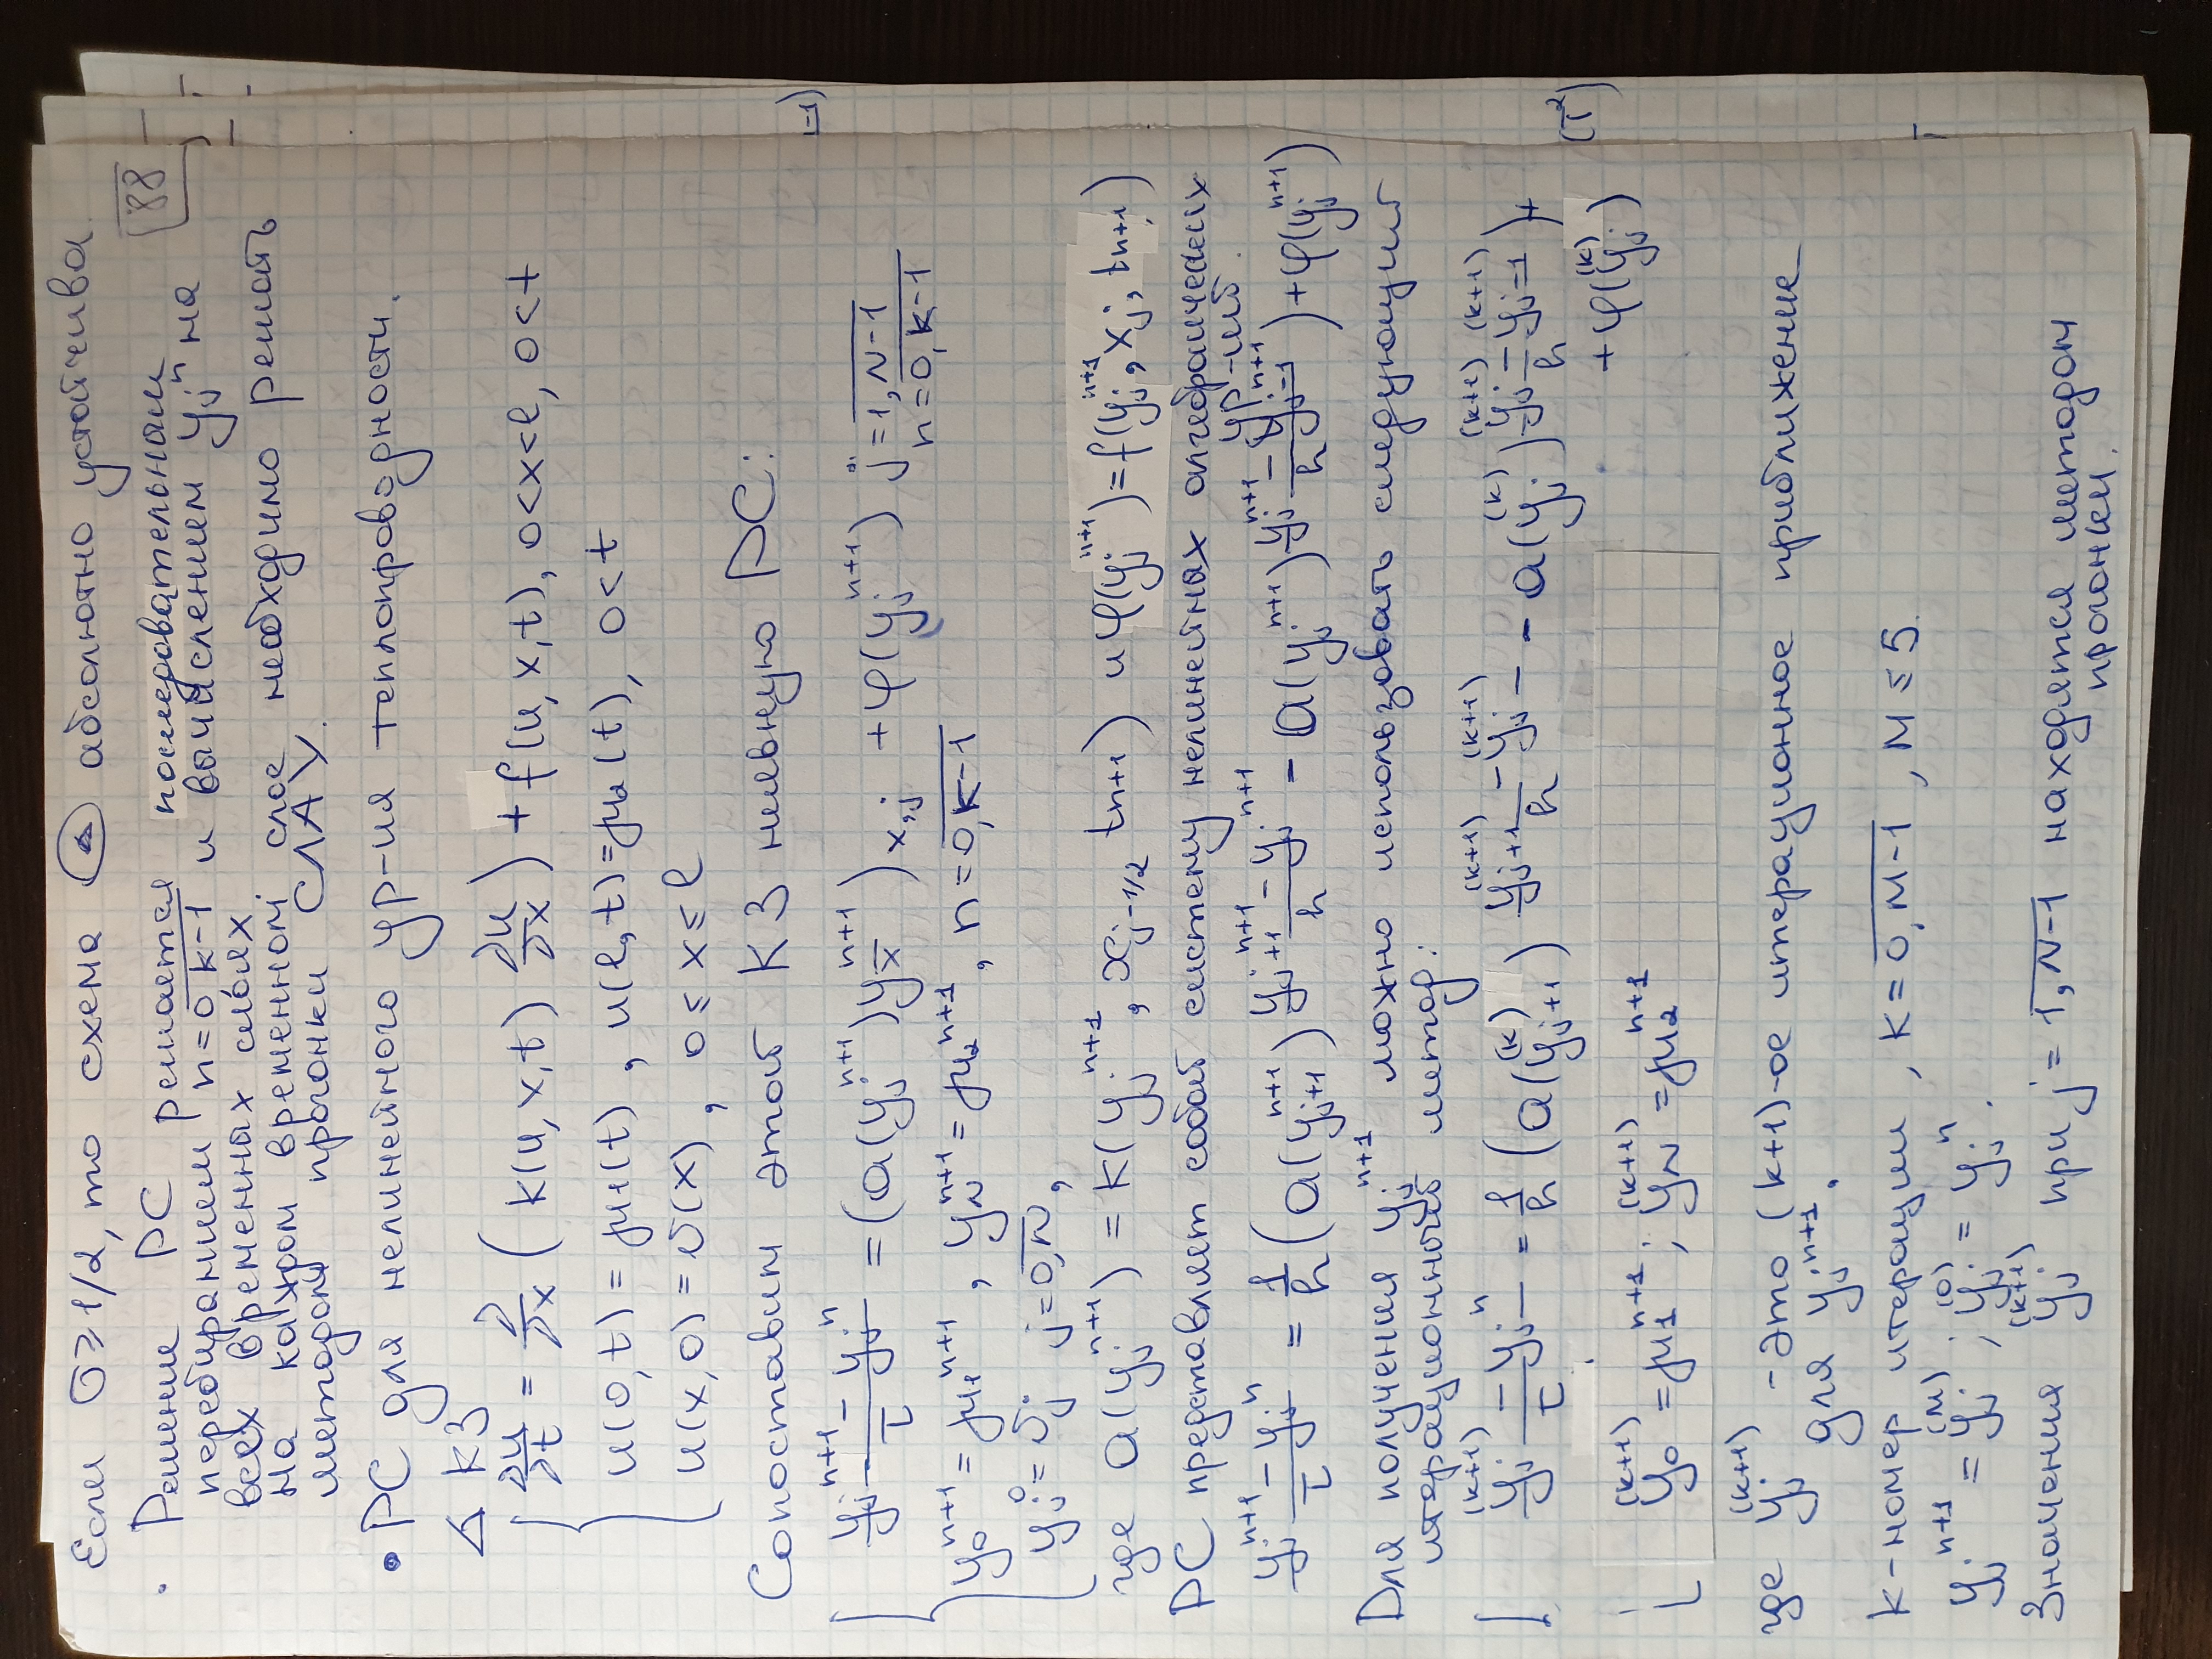 88
Если σ ⩾ 1/2, то схема абсолютно устойчива
· Решение РС решается последовательным
перебиранием n=0,k-1 и вычислением y_j^n на
всех временных слоях
на каждом временном слое необходимо решать
методом прогонки СЛАУ.
• РС для нелинейного ур-ия теплопроводности.
∆ КЗ
∂u/∂t = ∂/∂x (k(u,x,t) ∂u/∂x) + f(u,x,t), 0<x<l, 0<t
u(0,t) = μ₁(t), u(l,t)=μ₂(t), 0<t
u(x,0) = υ(x), 0≤x≤l
Сопоставим этой КЗ неявную РС:
(y_j^{n+1} - y_j^n)/τ = (a(y_j^{n+1})y_{x̄}^{n+1})_{x,j} + φ(y_j^{n+1}) j=1,N-1 n=0,k-1
y_0^{n+1} = μ₁^{n+1}, y_N^{n+1} = μ₂^{n+1}, n=0,k-1
y_j^0 = υ_j j=0,N,
где a(y_j^{n+1}) = k(y_j^{n+1}, x_{j-1/2}, t_{n+1}) и φ(y_j^{n+1})=f(y_j^{n+1}, x_j, t_{n+1})
РС представляет собой систему нелинейных алгебраических ур-ий.
(y_j^{n+1} - y_j^n)/τ = 1/h (a(y_{j+1}^{n+1}) (y_{j+1}^{n+1} - y_j^{n+1})/h - a(y_j^{n+1}) (y_j^{n+1} - y_{j-1}^{n+1})/h) + φ(y_j^{n+1})
Для получения y_j^{n+1} можно использовать следующий
итерационный метод:
(y_j^{(k+1)} - y_j^n)/τ = 1/h (a(y_{j+1}^{(k)}) (y_{j+1}^{(k+1)} - y_j^{(k+1)})/h - - a(y_j^{(k)}) (y_j^{(k+1)} - y_{j-1}^{(k+1)})/h) +
+ φ(y_j^{(k)})
y_0^{(k+1)} = μ_1^{n+1}; y_N^{(k+1)} = μ_2^{n+1}
где y_j^{(k+1)} - это (k+1)-ое итерационное приближение
для y_j^{n+1}.
k-номер итерации, k=0,M-1, M≤5
y_j^{n+1} = y_j^{(M)}, y_j^{(0)} = y_j^n.
Значения y_j^{(k+1)} при j=1,N-1 находятся методом
прогонки.